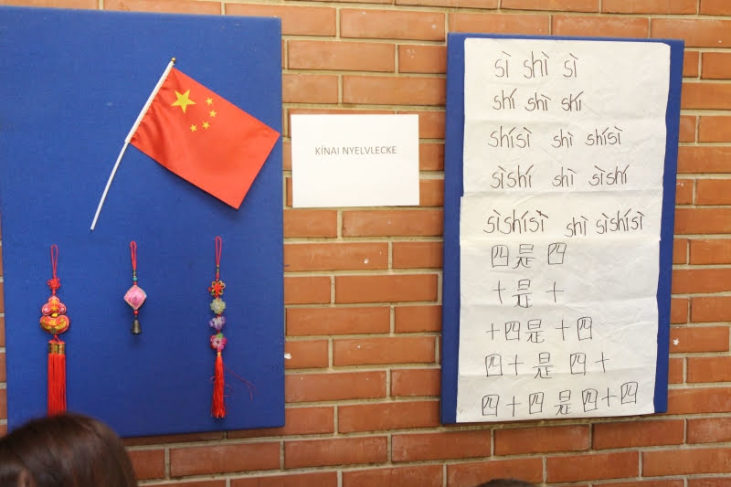 KÍNAI NYELVLECKE
sì shì sì
shí shì shí
shísì shì shísì
sìshí shì sìshí
sìshísì shì sìshísì
四是四
十是十
十四是十四
四十是四十
四十四是四十四